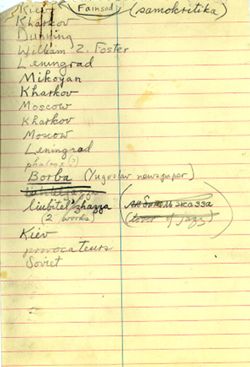 Kiev (Fainsod) (samokritika)
Kharkov
Dühring
William Z. Foster
Leningrad
Mikoyan
Kharkov
Moscow
Kharkov
Moscow
Leningrad
Borba (Yugoslav newspaper)
liubitel' zhazza
(2 words)
(lover of jazz)
Kiev
provocateurs
Soviet